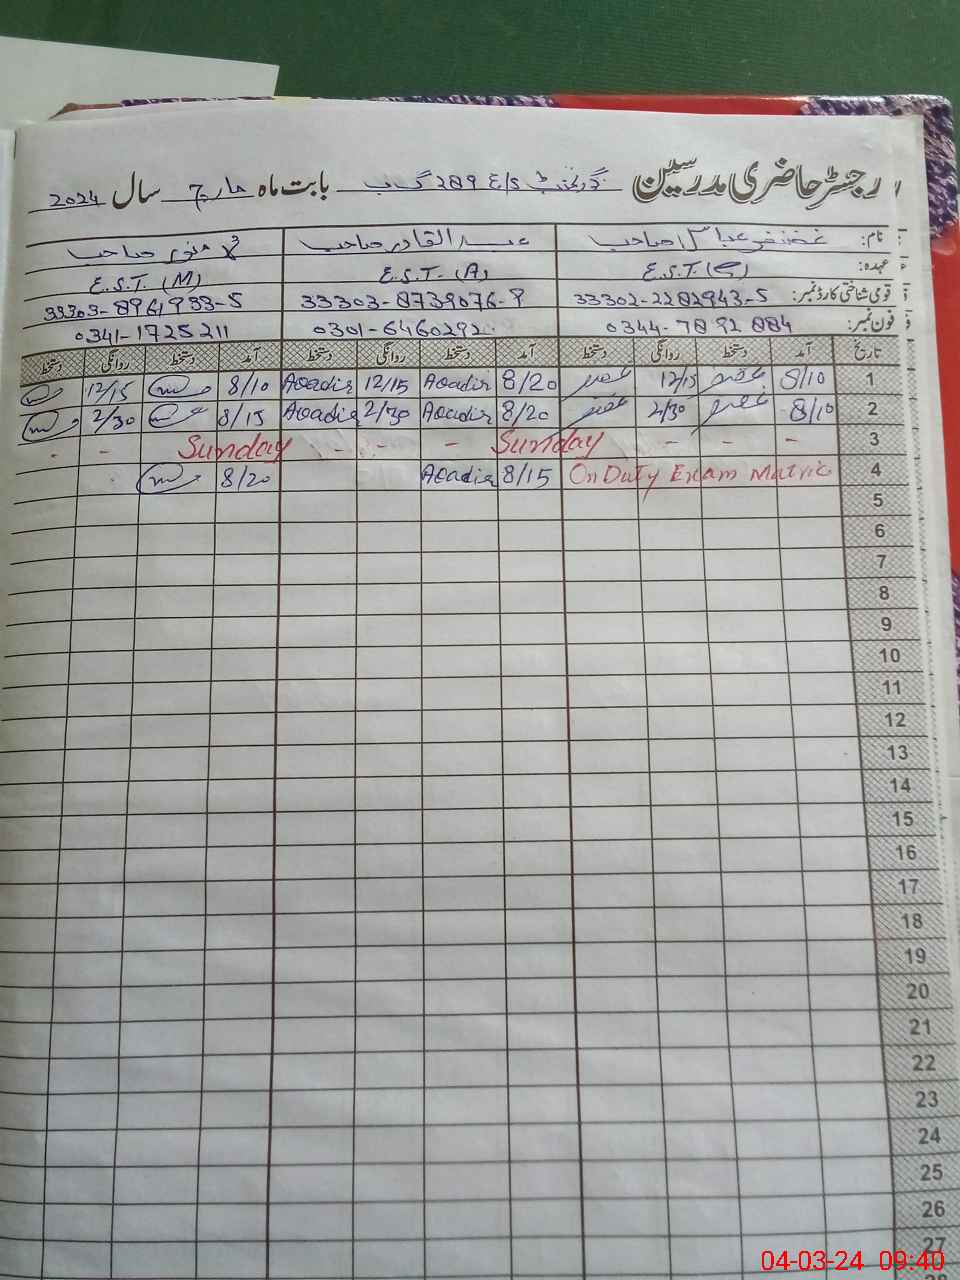 رجسٹر حاضری مدرسین گورنمنٹ E/S 289 گ ب بابت ماہ مارچ سال 2024
نام: غضنفر عباس صاحب عبدالقادر صاحب منور صاحب
عہدہ: E.S.T. E.S.T. (A) E.S.T. (M)
قومی شناختی کارڈ نمبر: 33302-2282943-5 33303-8739076-9 33303-8961933-5
فون نمبر: 0344-7892884 0301-6460292 0341-1725211
تاریخ آمد دستخط روانگی دستخط آمد دستخط روانگی دستخط آمد دستخط روانگی دستخط
1 8/10 غضنفر 12/15 غضنفر 8/20 Aqadir 12/15 Aqadir 8/10 12/15
2 8/10 غضنفر 2/30 غضنفر 8/20 Aqadir 2/30 Aqadir 8/15 2/30
3 - - - Sunday - - - Sunday - -
4 On Duty Exam Matric 8/15 Aqadir 8/20
5
6
7
8
9
10
11
12
13
14
15
16
17
18
19
20
21
22
23
24
25
26
27
04-03-24 09:40